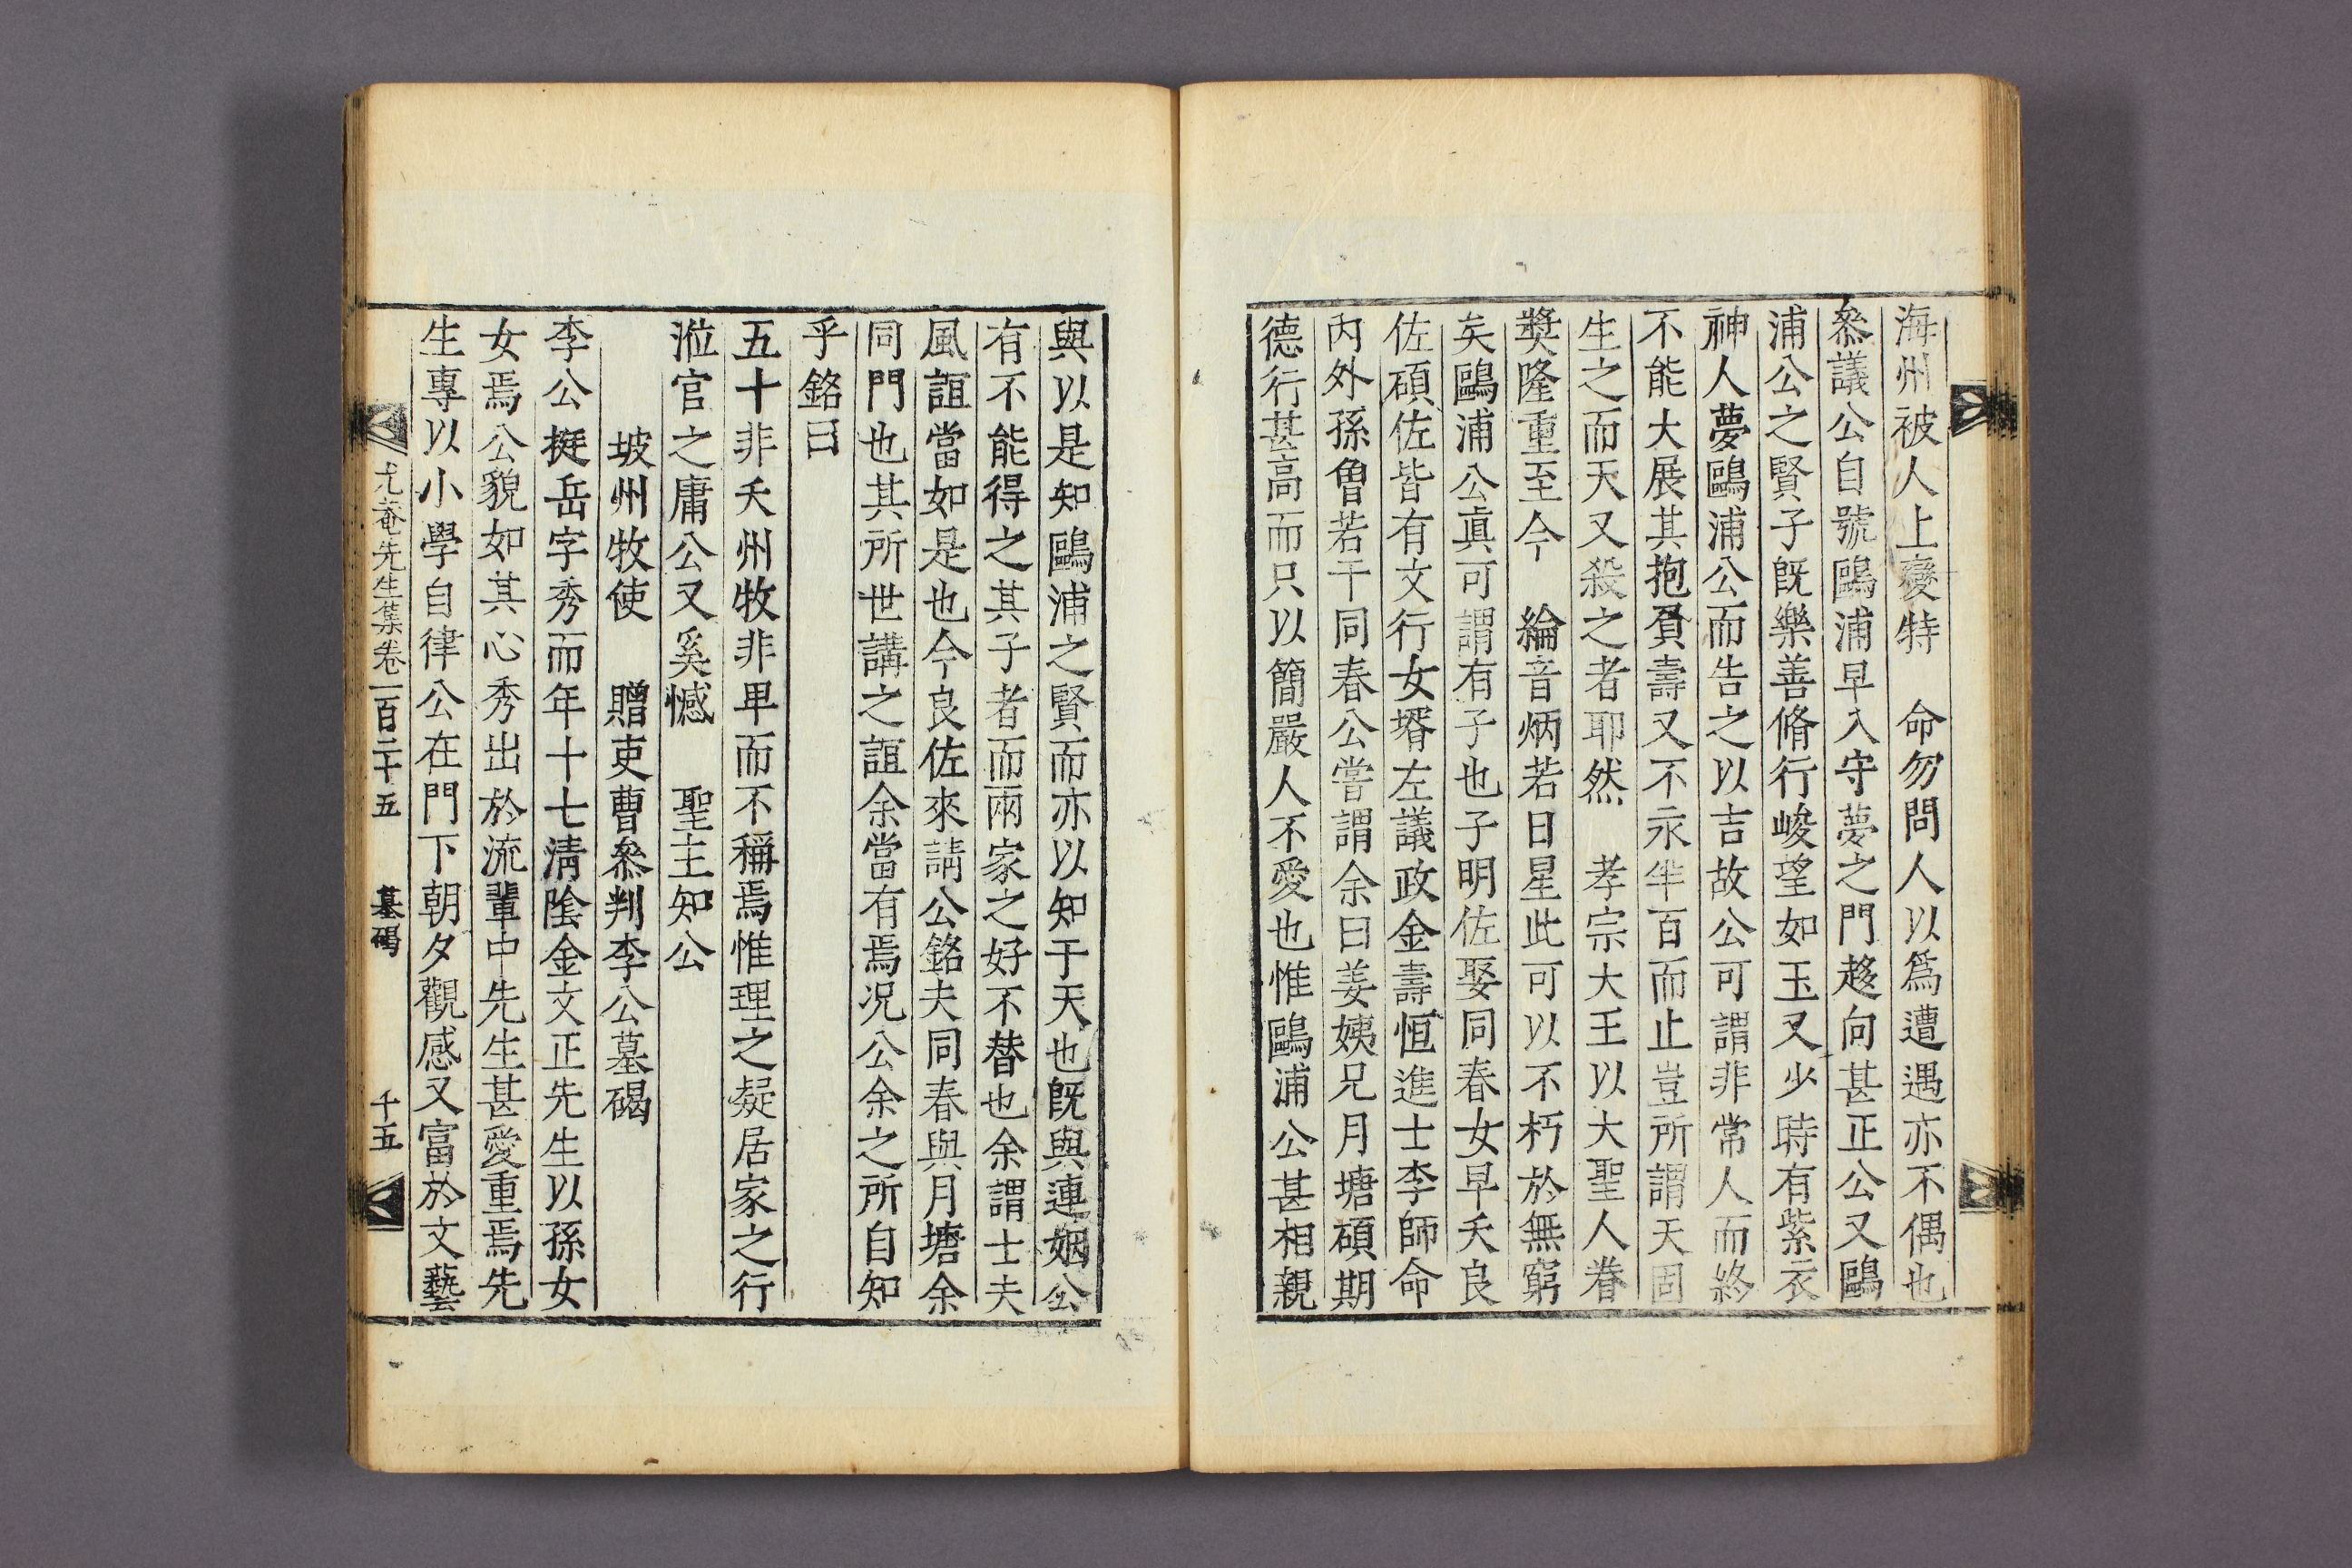 海州被人上變特　命勿問人以爲遭遇亦不偶也
叅議公自號鷗浦早入守夢之門趍向甚正公又鷗
浦公之賢子旣樂善脩行峻望如玉又少時有紫衣
神人夢鷗浦公而告之以吉故公可謂非常人而終
不能大展其抱負壽又不永半百而止豈所謂天固
生之而天又殺之者耶然　孝宗大王以大聖人眷
奬隆重至今　綸音炳若日星此可以不朽於無窮
矣鷗浦公眞可謂有子也子明佐娶同春女早夭良
佐碩佐皆有文行女壻左議政金壽恒進士李師命
內外孫曾若干同春公嘗謂余曰姜姨兄月塘碩期
德行甚高而只以簡嚴人不愛也惟鷗浦公甚相親
與以是知鷗浦之賢而亦以知于天也旣與連姻公
有不能得之其子者而兩家之好不替也余謂士夫
風誼當如是也今良佐來請公銘夫同春與月塘余
同門也其所世講之誼余當有焉况公余之所自知
乎銘曰
五十非夭州牧非卑而不稱焉惟理之疑居家之行
涖官之庸公又奚憾　聖主知公
坡州牧使　贈吏曹叅判李公墓碣
李公挺岳字秀而年十七淸陰金文正先生以孫女
女焉公貌如其心秀出於流輩中先生甚愛重焉先
生專以小學自律公在門下朝夕觀感又富於文藝
尤菴先生集卷一百七十五　墓碣　十五